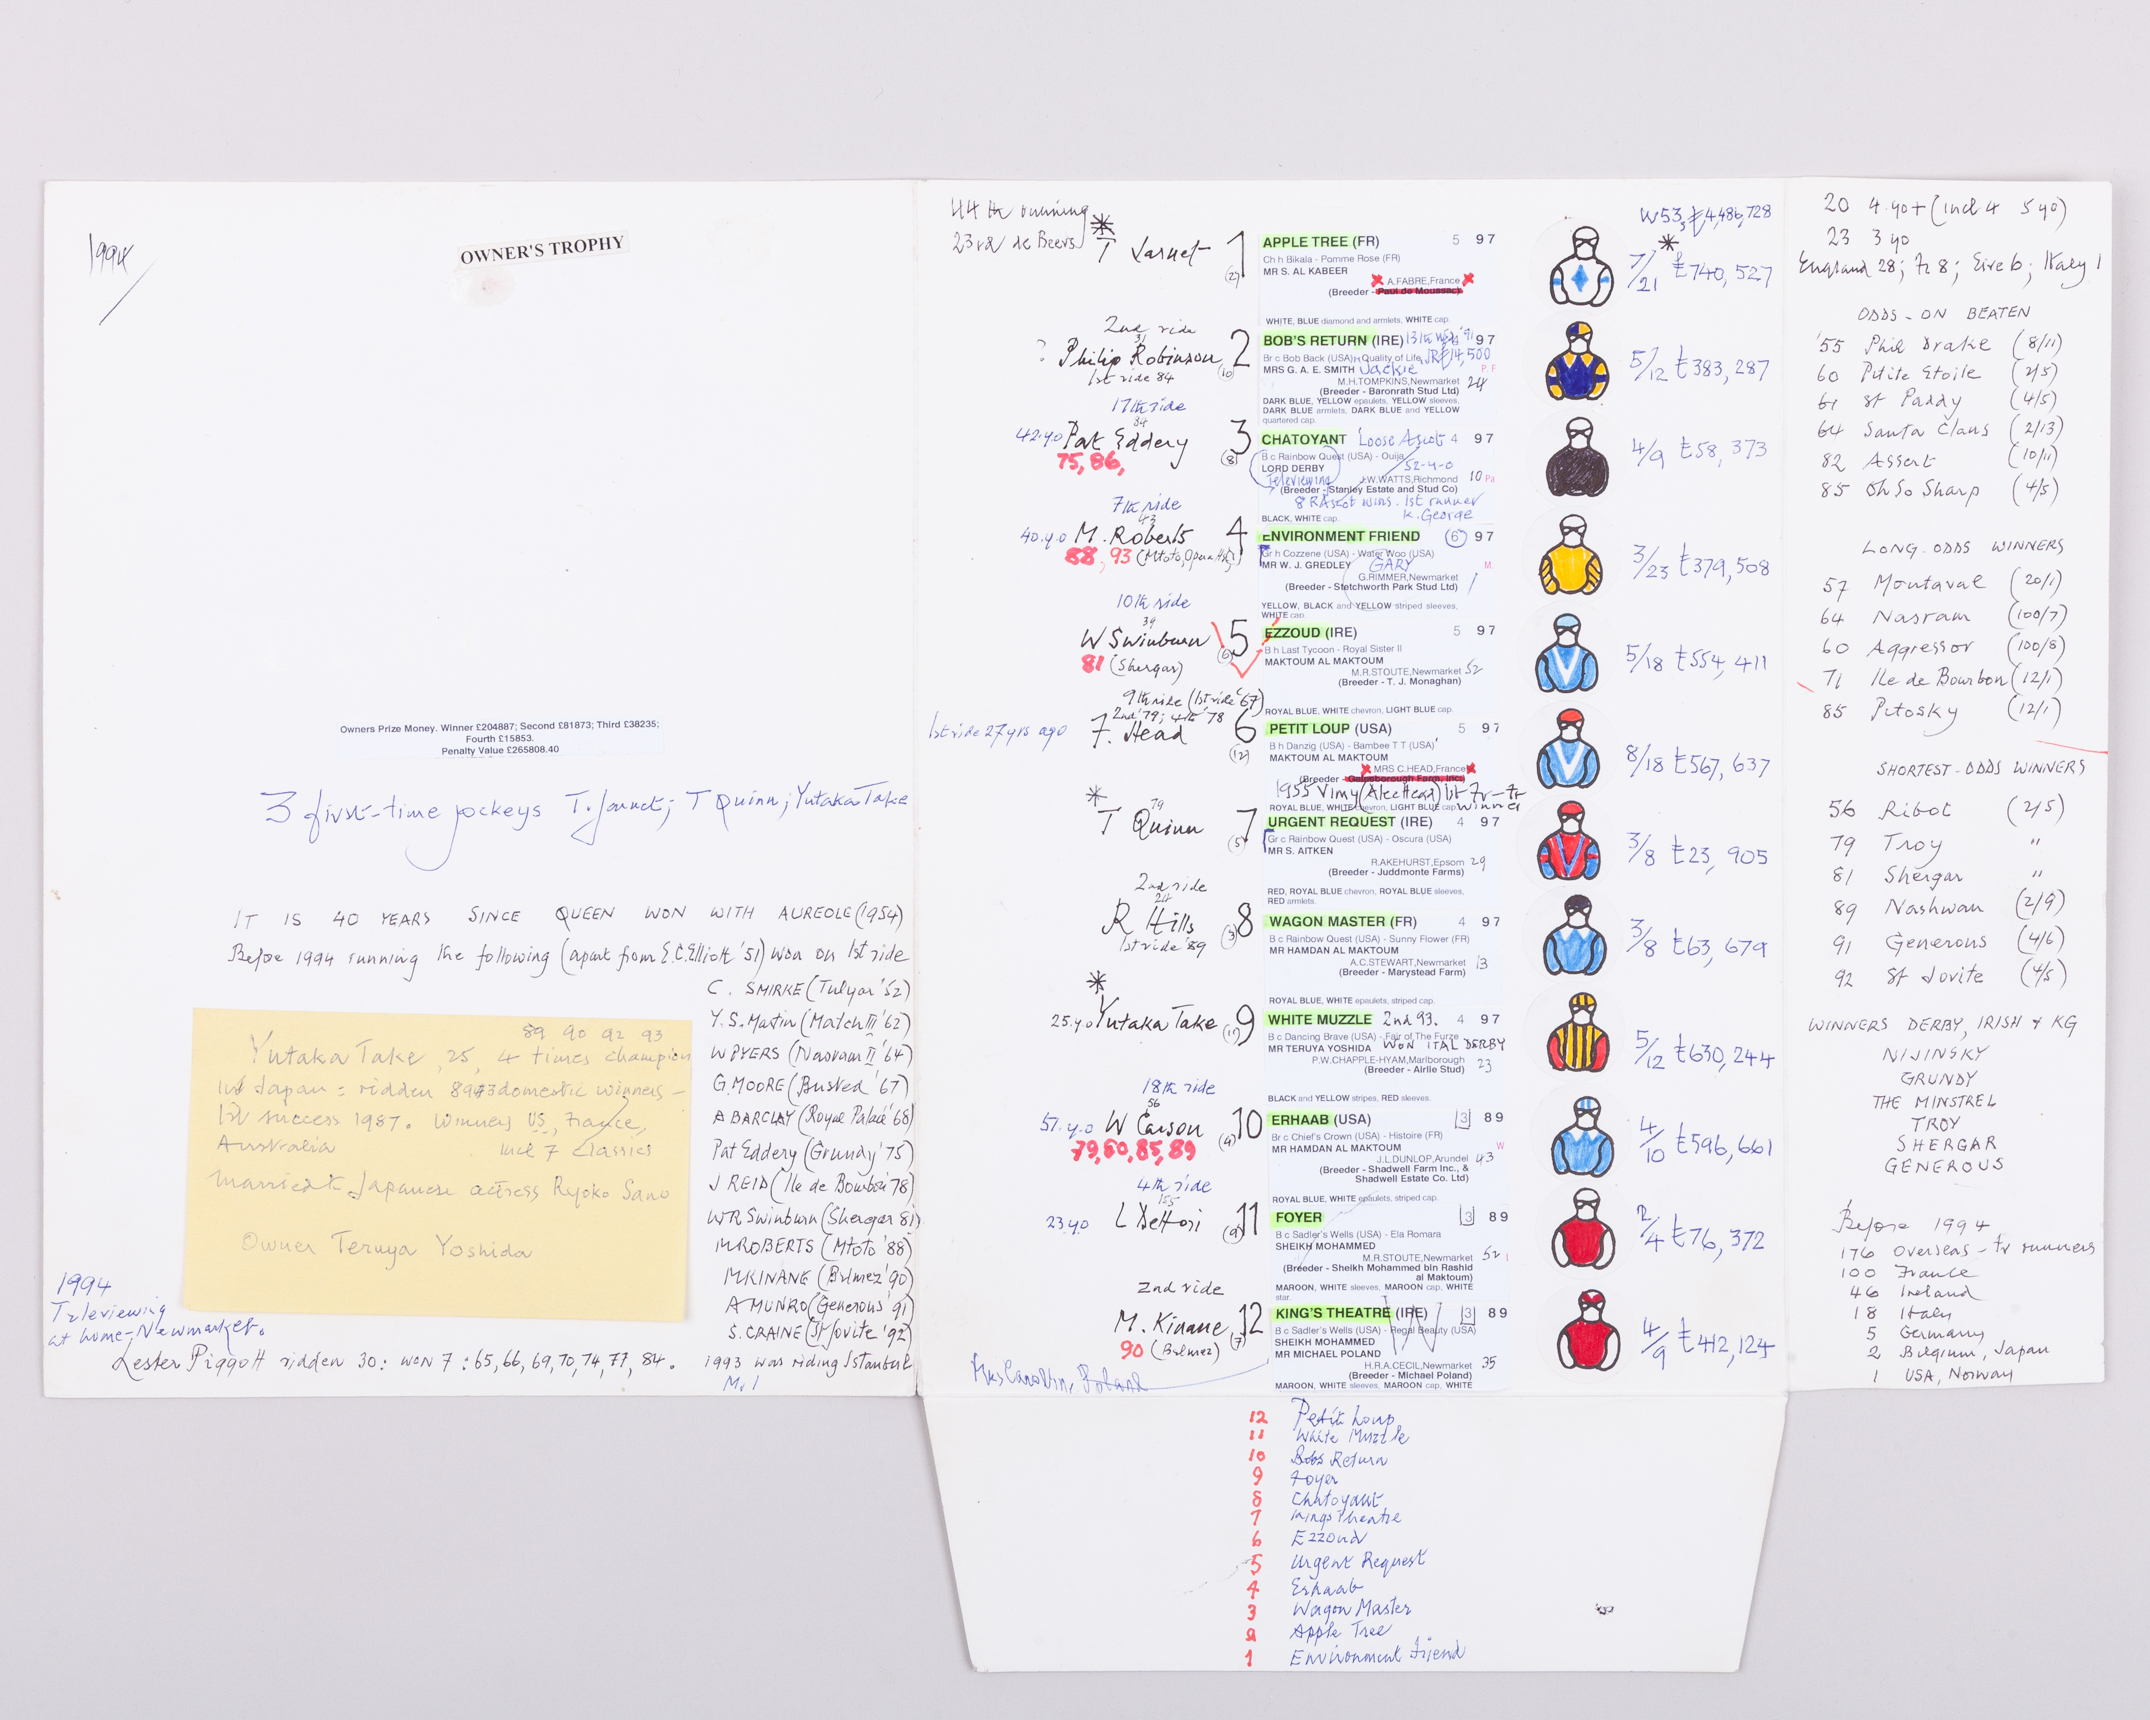 1994
OWNER'S TROPHY
Owners Prize Money. Winner £204887; Second £81873; Third £38235;
Fourth £15853.
Penalty Value £265808.40
3 first-time jockeys T. Jarnet; T Quinn; Yutaka Take
IT IS 40 YEARS SINCE QUEEN WON WITH AUREOLE (1954)
Before 1994 running the following (apart from E.C. Elliott '51) won on 1st ride
C. SMIRKE (Tulyar '52)
Y.S. Martin (Match III '62)
W PYERS (Nasram II '64)
G. MOORE (Busted '67)
A BARCLAY (Royal Palace '68)
Pat Eddery (Grundy '75)
J REID (Ile de Bourbon '78)
WR Swinburn (Shergar 81)
M ROBERTS (Mtoto '88)
M KINANE (Belmez '90)
A MUNRO (Generous '91)
S. CRAINE (St Jovite '92)
1993 was riding Istanbul
89 90 92 93
Yutaka Take, 25, 4 times champion
in Japan = ridden domestic winners -
1st success 1987. Winners US, France,
Australia incl 7 Classics
Married Japanese actress Ryoko Sano
Owner Teruya Yoshida
1994
Televiewing
at home - Newmarket.
Lester Piggott ridden 30: won 7: 65, 66, 69, 70, 74, 77, 84.
44th running
23rd de Beers
W53, £4,486,728
* T Jarnet 1 (2)
APPLE TREE (FR) 5 97
Ch h Bikala - Pomme Rose (FR)
MR S. AL KABEER
A.FABRE, France
(Breeder - Paul de Moussac)
WHITE, BLUE diamond and armlets, WHITE cap.
7/21 £740,527
2nd ride
31
? Philip Robinson 2 (10)
1st ride 84
BOB'S RETURN (IRE) 97
Br c Bob Back (USA) - Quality of Life
MRS G. A. E. SMITH Jackie
M.H.TOMPKINS, Newmarket 24
(Breeder - Baronrath Stud Ltd)
DARK BLUE, YELLOW epaulets, YELLOW sleeves,
DARK BLUE armlets, DARK BLUE and YELLOW
quartered cap.
5/12 £383,287
17th ride
84
42.y.o Pat Eddery 3 (8)
75, 86,
CHATOYANT Loose Ascot 4 97
B c Rainbow Quest (USA) - Ouija
LORD DERBY 52-4-0
Televiewing J.W.WATTS, Richmond 10
(Breeder - Stanley Estate and Stud Co)
8 RAscot wins. 1st runner
K. George
BLACK, WHITE cap.
4/9 £58,373
7th ride
43
40.y.o M. Roberts 4
88, 93 (Mtoto, Opera Hse)
ENVIRONMENT FRIEND 6 97
Gr h Cozzene (USA) - Water Woo (USA)
MR W. J. GREDLEY GARY
G.RIMMER, Newmarket 1
(Breeder - Stetchworth Park Stud Ltd)
YELLOW, BLACK and YELLOW striped sleeves,
WHITE cap.
3/23 £379,508
10th ride
39
W Swinburn 5 (6)
81 (Shergar)
EZZOUD (IRE) 5 97
B h Last Tycoon - Royal Sister II
MAKTOUM AL MAKTOUM
M.R.STOUTE, Newmarket 52
(Breeder - T. J. Monaghan)
ROYAL BLUE, WHITE chevron, LIGHT BLUE cap.
5/18 £554,411
9th ride (1st ride '67)
2nd '79; 4th '78
1st ride 27 yrs ago F. Head 6 (12)
PETIT LOUP (USA) 5 97
B h Danzig (USA) - Bambee T T (USA)
MAKTOUM AL MAKTOUM
MRS C.HEAD, France
(Breeder - Gainsborough Farm, Inc.)
1955 Vimy (Alec Head) 1st Fr-tr
winner
ROYAL BLUE, WHITE chevron, LIGHT BLUE cap
8/18 £567,637
* 79
T Quinn 7 (5)
URGENT REQUEST (IRE) 4 97
Gr c Rainbow Quest (USA) - Oscura (USA)
MR S. AITKEN
R.AKEHURST, Epsom 29
(Breeder - Juddmonte Farms)
RED, ROYAL BLUE chevron, ROYAL BLUE sleeves,
RED armlets.
3/8 £23,905
2nd ride
R Hills 8 (3)
1st ride '89
WAGON MASTER (FR) 4 97
B c Rainbow Quest (USA) - Sunny Flower (FR)
MR HAMDAN AL MAKTOUM
A.C.STEWART, Newmarket 13
(Breeder - Marystead Farm)
ROYAL BLUE, WHITE epaulets, striped cap.
3/8 £63,679
*
25.y.o Yutaka Take 9
WHITE MUZZLE 2nd 93. 4 97
B c Dancing Brave (USA) - Fair of The Furze
MR TERUYA YOSHIDA WON ITAL DERBY
P.W.CHAPPLE-HYAM, Marlborough 23
(Breeder - Airlie Stud)
BLACK and YELLOW stripes, RED sleeves.
5/12 £630,244
18th ride
56
51.y.o W Carson 10 (4)
79, 80, 85, 89
ERHAAB (USA) 3 89
Br c Chief's Crown (USA) - Histoire (FR)
MR HAMDAN AL MAKTOUM
J.L.DUNLOP, Arundel 43
(Breeder - Shadwell Farm Inc., &
Shadwell Estate Co. Ltd)
ROYAL BLUE, WHITE epaulets, striped cap.
4/10 £596,661
4th ride
155
23 yo L Dettori 11 (9)
FOYER 3 89
B c Sadler's Wells (USA) - Ela Romara
SHEIKH MOHAMMED
M.R.STOUTE, Newmarket 52
(Breeder - Sheikh Mohammed bin Rashid
al Maktoum)
MAROON, WHITE sleeves, MAROON cap, WHITE
star.
2/4 £76,372
2nd ride
M. Kinane 12 (7)
90 (Belmez)
KING'S THEATRE (IRE) 3 89
B c Sadler's Wells (USA) - Regal Beauty (USA)
SHEIKH MOHAMMED
MR MICHAEL POLAND
H.R.A.CECIL, Newmarket 35
(Breeder - Michael Poland)
MAROON, WHITE sleeves, MAROON cap, WHITE
4/9 £412,124
Mrs Carolyn Poland
12 Petit Loup
11 White Muzzle
10 Bobs Return
9 Foyer
8 Chatoyant
7 Kings Theatre
6 Ezzoud
5 Urgent Request
4 Erhaab
3 Wagon Master
2 Apple Tree
1 Environment Friend
20 4.yo+ (incl 4 5 yo)
23 3 yo
England 28; Fr 8; Eire 6; Italy 1
ODDS-ON BEATEN
'55 Phil Drake (8/11)
60 Petite Etoile (2/5)
61 St Paddy (4/5)
64 Santa Claus (2/13)
82 Assert (10/11)
85 Oh So Sharp (4/5)
LONG-ODDS WINNERS
57 Montaval (20/1)
64 Nasram (100/7)
60 Aggressor (100/8)
71 Ile de Bourbon (12/1)
85 Petosky (12/1)
SHORTEST-ODDS WINNERS
56 Ribot (2/5)
79 Troy "
81 Shergar "
89 Nashwan (2/9)
91 Generous (4/6)
92 St Jovite (4/5)
WINNERS DERBY, IRISH + KG
NIJINSKY
GRUNDY
THE MINSTREL
TROY
SHERGAR
GENEROUS
Before 1994
176 overseas-tr runners
100 France
46 Ireland
18 Italy
5 Germany
2 Belgium, Japan
1 USA, Norway